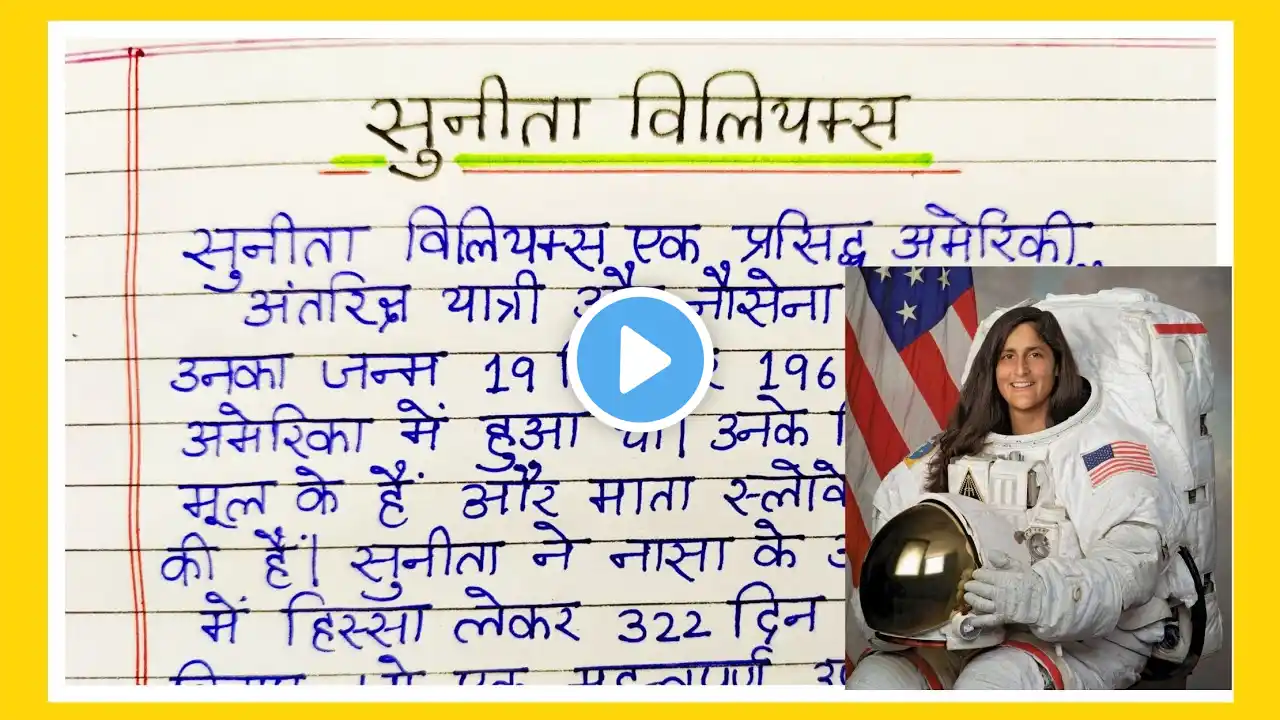 सुनीता विलियम्स
सुनीता विलियम्स एक प्रसिद्ध अमेरिकी
अंतरिक्ष यात्री और नौसेना
उनका जन्म 19 196
अमेरिका में हुआ था। उनके
मूल के हैं और माता
की हैं। सुनीता ने नासा के
में हिस्सा लेकर 322 दिन